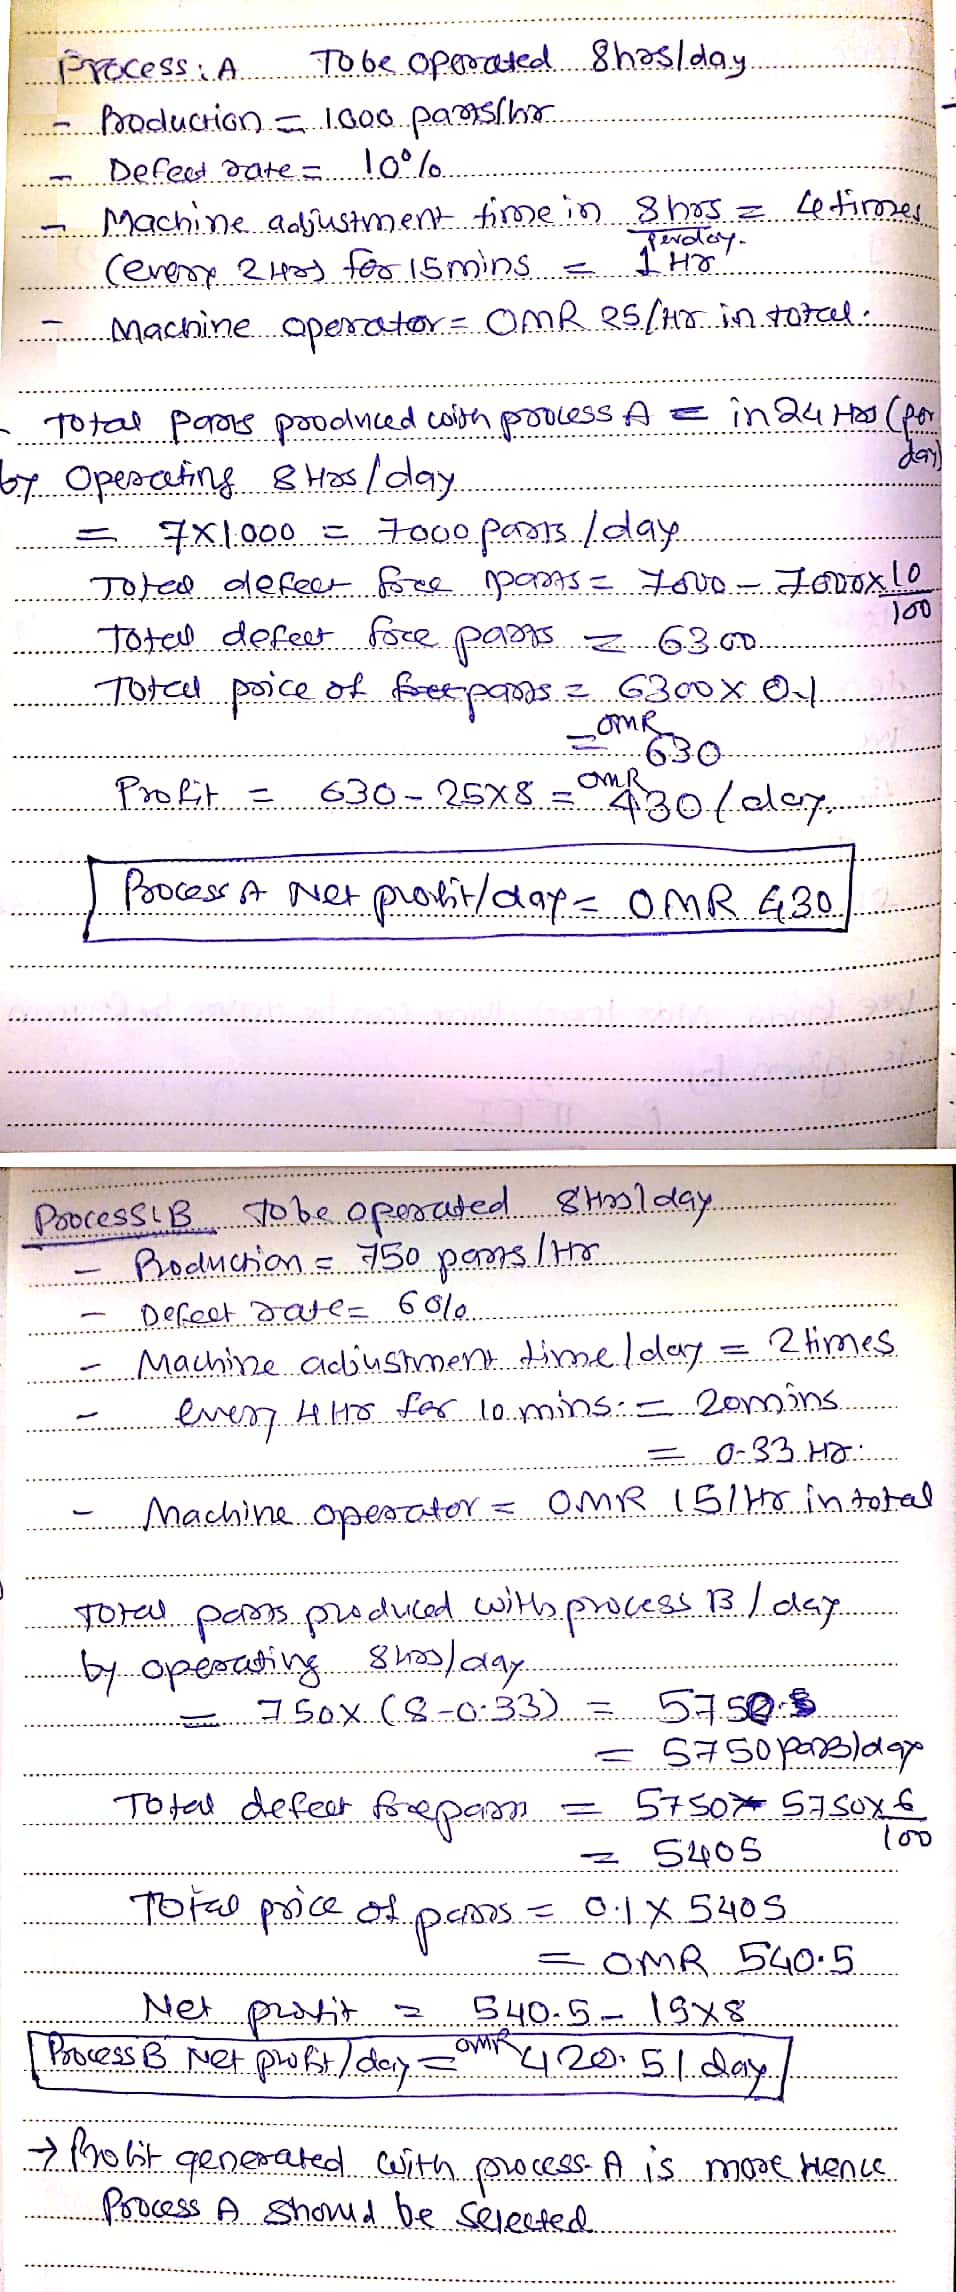 Process: A To be operated 8hrs/day
- Production = 1000 parts/hr
- Defect rate = 10%
- Machine adjustment time in 8 hrs = 4 times
per day.
(every 2 Hrs for 15 mins = 1 Hr
- Machine operator = OMR 25/Hr in total.
Total parts produced with process A = in 24 Hrs (per day)
by operating 8 Hrs/day
= 7x1000 = 7000 parts/day
Total defect free parts = 7000 - 7000x10/100
Total defect free parts = 6300
Total price of free parts = 6300 x 0.1
= OMR 630
Profit = 630 - 25x8 = OMR 430/day.
Process A Net profit/day = OMR 430
Process: B To be operated 8 Hrs/day
- Production = 750 parts/Hr
- Defect rate = 6%
- Machine adjustment time/day = 2 times
- every 4 Hr for 10 mins. = 20 mins
= 0.33 Hr.
- Machine operator = OMR 15/Hr in total
Total parts produced with process B / day
by operating 8 hrs/day
= 750 x (8-0.33) = 5750.5
= 5750 parts/day
Total defect free parts = 5750 - 5750x6/100
= 5405
Total price of parts = 0.1 x 5405
= OMR 540.5
Net profit = 540.5 - 15x8
Process B Net profit/day = OMR 420.5/day
→ Profit generated with process A is more Hence
Process A should be selected